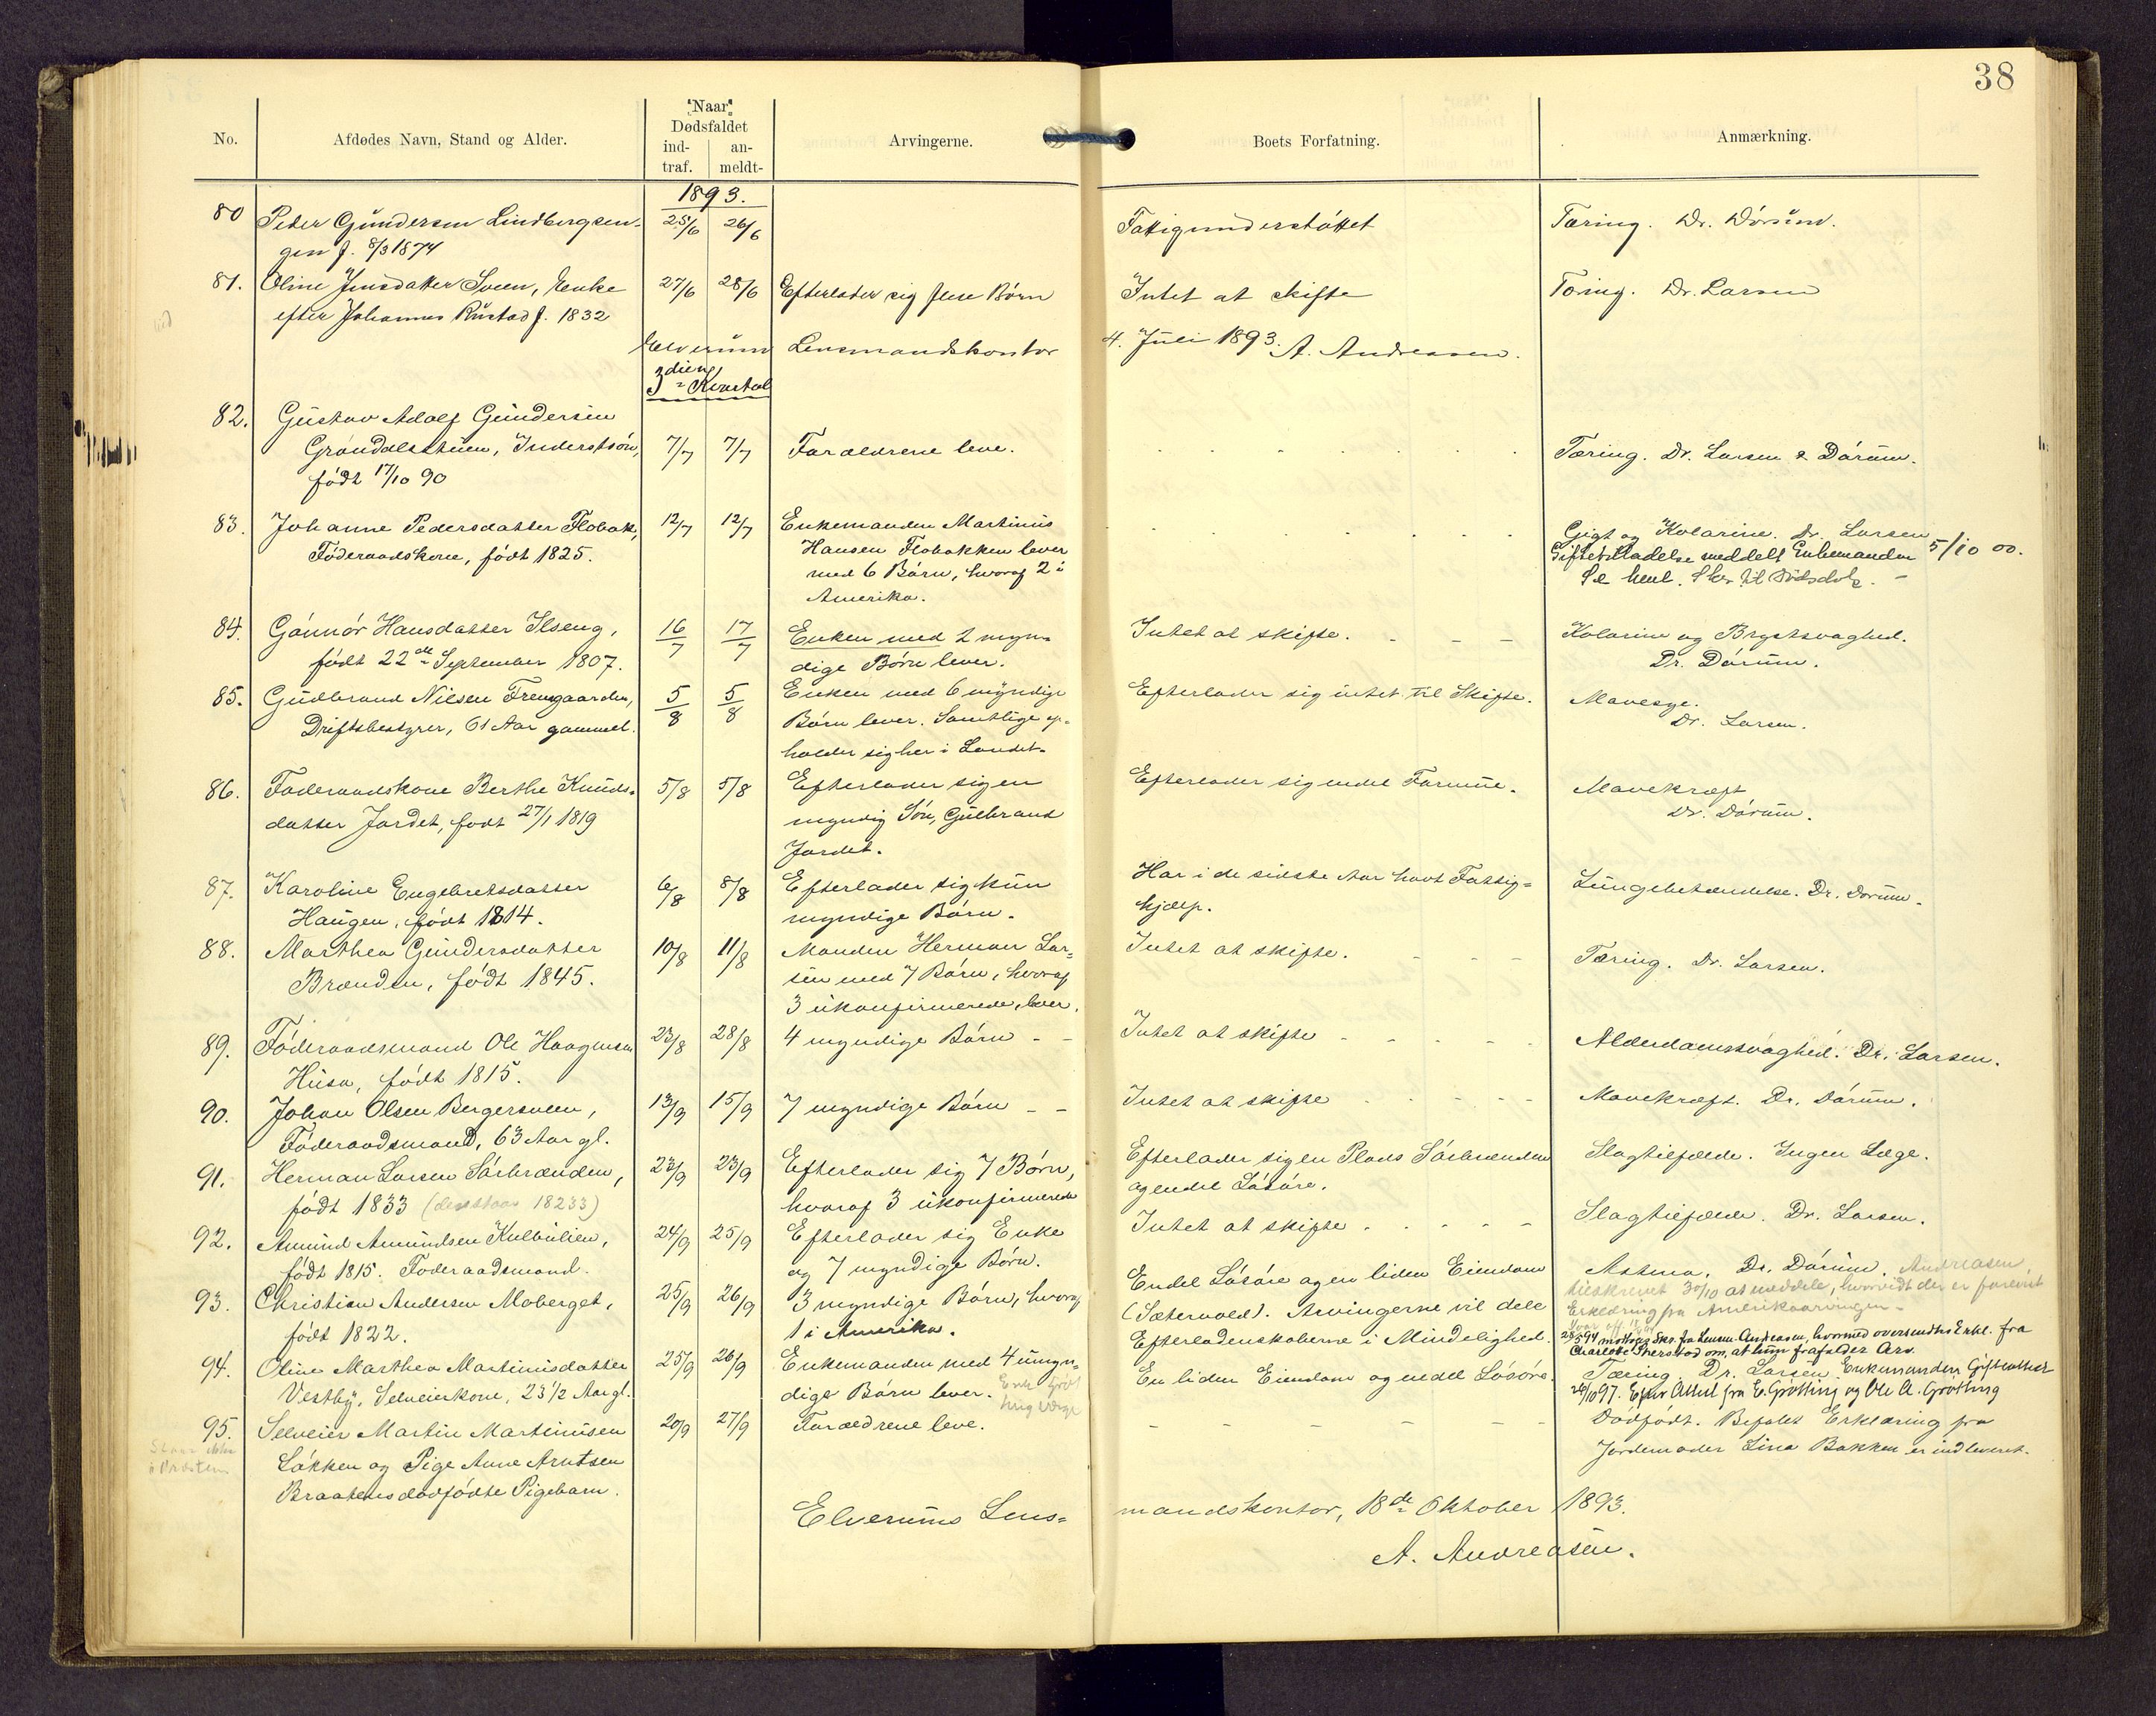 38
No.
Afdødes Navn, Stand og Alder.
"Naar"
Dødsfaldet
ind-
traf.
an-
meldt-
Arvingerne.
Boets Forfatning.
Anmærkning.
1893.
80 Peder Gundersen Lindbergsen- 25/6 26/6 Fattigunderstøttet Tæring. Dr. Dørum.
gen f. 8/3 1874
81. Oline Jensdatter Sveen, Enke 27/6 28/6 Efterlader sig flere Børn Intet at skifte Tæring. Dr. Larsen
efter Johannes Rustad f. 1832
Elverum Lensmandskontor 4. Juli 1893. A. Andreasen.
3die Kvartal
82. Gustav Adolf Gundersen
Grøndalsstuen, Inderstsøn, 7/7 7/7 Forældrene leve. Tæring. Dr. Larsen & Dørum.
født 17/10 90
83. Johanne Pedersdatter Flobak, 12/7 12/7 Enkemanden Martinus Gigt og Kolerine. Dr. Larsen
Føderaadskone, født 1825. Hansen Flobakken lever Giftetilladelse meddelt Enkemanden 5/10 00.
med 6 Børn, hvoraf 2 i Se henl. Skr. til
Amerika.
84. Gønnør Hansdatter Ilseng, 16/7 17/7 Enken med 2 myn- Intet at skifte. Kolerine og Brystsvaghed.
født 22de September 1807. dige Børn lever. Dr. Dørum.
85. Gudbrand Nilsen Fremgaarden, 5/8 5/8 Enken med 6 myndige Efterlader sig intet til Skifte. Mavesyge.
Driftsbestyrer, 61 Aar gammel. Børn lever. Samtlige op- Dr. Larsen.
holder sig her i Landet.
86. Føderaadskone Berthe Knuds- 5/8 5/8 Efterlader sig en Efterlader sig endel Formue. Mavekræft
datter Jordet, født 27/1 1819 myndig Søn, Gulbrand Dr. Dørum.
Jordet.
87. Karoline Engebretsdatter 6/8 8/8 Efterlader sig kun Har i de sidste Aar havt Fattig- Lungebetændelse. Dr. Dørum.
Haugen, født 1814. myndige Børn. hjælp.
88. Marthea Gundersdatter 10/8 11/8 Manden Herman Lar- Intet at skifte. Tæring. Dr. Larsen.
Brænden, født 1845. sen med 7 Børn, hvoraf
3 ukonfirmerede, lever.
89. Føderaadsmand Ole Haagensen 23/8 28/8 4 myndige Børn - - Intet at skifte Alderdomssvaghed. Dr. Larsen.
Husa, født 1815.
90. Johan Olsen Bergersveen, 13/9 15/9 7 myndige Børn - - Intet at skifte Mavekræft. Dr. Dørum.
Føderaadsmand, 63 Aar gl.
91. Herman Larsen Sørbrænden, 23/9 23/9 Efterlader sig 7 Børn, Efterlader sig en Plads Sørbrænden Slagtilfælde. Ingen Læge.
født 1833 hvoraf 3 ukonfirmerede og endel Løsøre.
92. Amund Amundsen Kulbulien, 24/9 25/9 Efterlader sig Enke Intet at skifte Slagtilfælde. Dr. Larsen.
født 1815. Føderaadsmand. og 7 myndige Børn.
93. Christian Andersen Moberget, 25/9 26/9 3 myndige Børn, hvoraf Endel Løsøre og en liden Eiendom Astma. Dr. Dørum. Andreasen
født 1822. 1 i Amerika. (Sætervold). Arvingerne vil dele tilskrevet 30/10 at meddele, hvorvidt der er foreviist
Efterladenskaberne i Mindelighed. Erklæring fra Amerikaarvingen.
28/5 94 modtag Skr. fra Lensm. Andreasen, hvormed oversendtes Erkl. fra
om, at hun frafalder Arv.
94. Oline Marthea Martinusdatter 25/9 26/9 Enkemanden med 4 umyn- En liden Eiendom og endel Løsøre. Tæring. Dr. Larsen. Enkemanden Gifteattest
Vestby, Selveierkone, 23 1/2 Aar gl. dige Børn lever. 26/10 97. Efter Attest fra E. Grøtting og Ole A. Grøtting
95. Selveier Martin Martinusen 20/9 27/9 Forældrene leve. Dødfødt. Befalet Erklæring fra
Løkken og Pige Anne Arntsen Jordemoder Lina Bakken er indleveret.
Braatens dødfødte Pigebarn.
Elverums Lens- mandskontor, 18de Oktober 1893.
A. Andreasen.